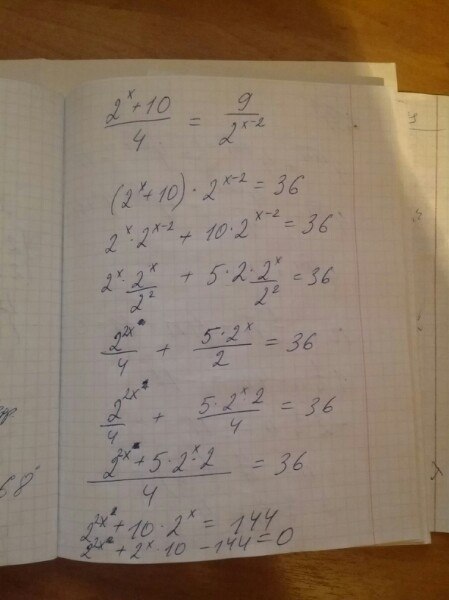 (2^x + 10)/4 = 9/2^(x-2)
(2^x + 10) · 2^(x-2) = 36
2^x · 2^(x-2) + 10 · 2^(x-2) = 36
2^x · 2^x/2^2 + 5 · 2 · 2^x/2^2 = 36
2^(2x)/4 + 5 · 2^x/2 = 36
2^(2x)/4 + 5 · 2^x · 2/4 = 36
(2^(2x) + 5 · 2^x · 2)/4 = 36
2^(2x) + 10 · 2^x = 144
2^(2x) + 2^x · 10 - 144 = 0
68